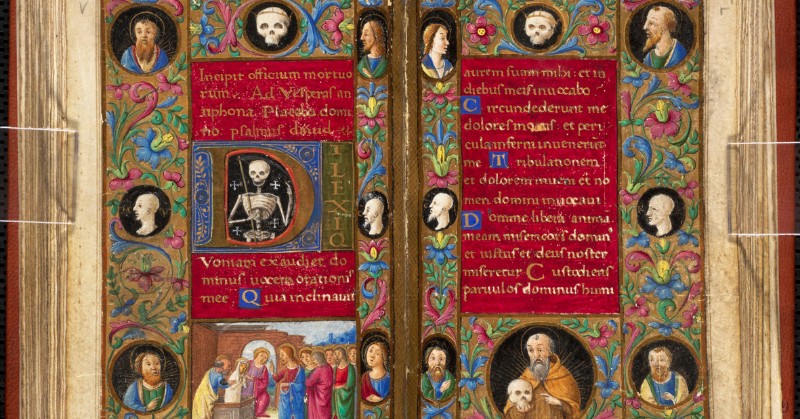 Incipit officium mortuo
rum. Ad Vesperas an
tiphona. Placebo domi
no. psalmus david.
D
ILEXI Q
Voniam exaudiet do
minus: vocem orationis
mee Quia inclinavit
aurem suam mihi: et in
diebus meis invocabo
Circundederunt me
dolores mortis: et peri
cula inferni invenerunt
me Tribulationem
et dolorem inveni: et no
men domini invocavi
Domine libera anima
meam misericors dominus
et iustus et deus noster
miseretur Custodiens
parvulos dominus humi